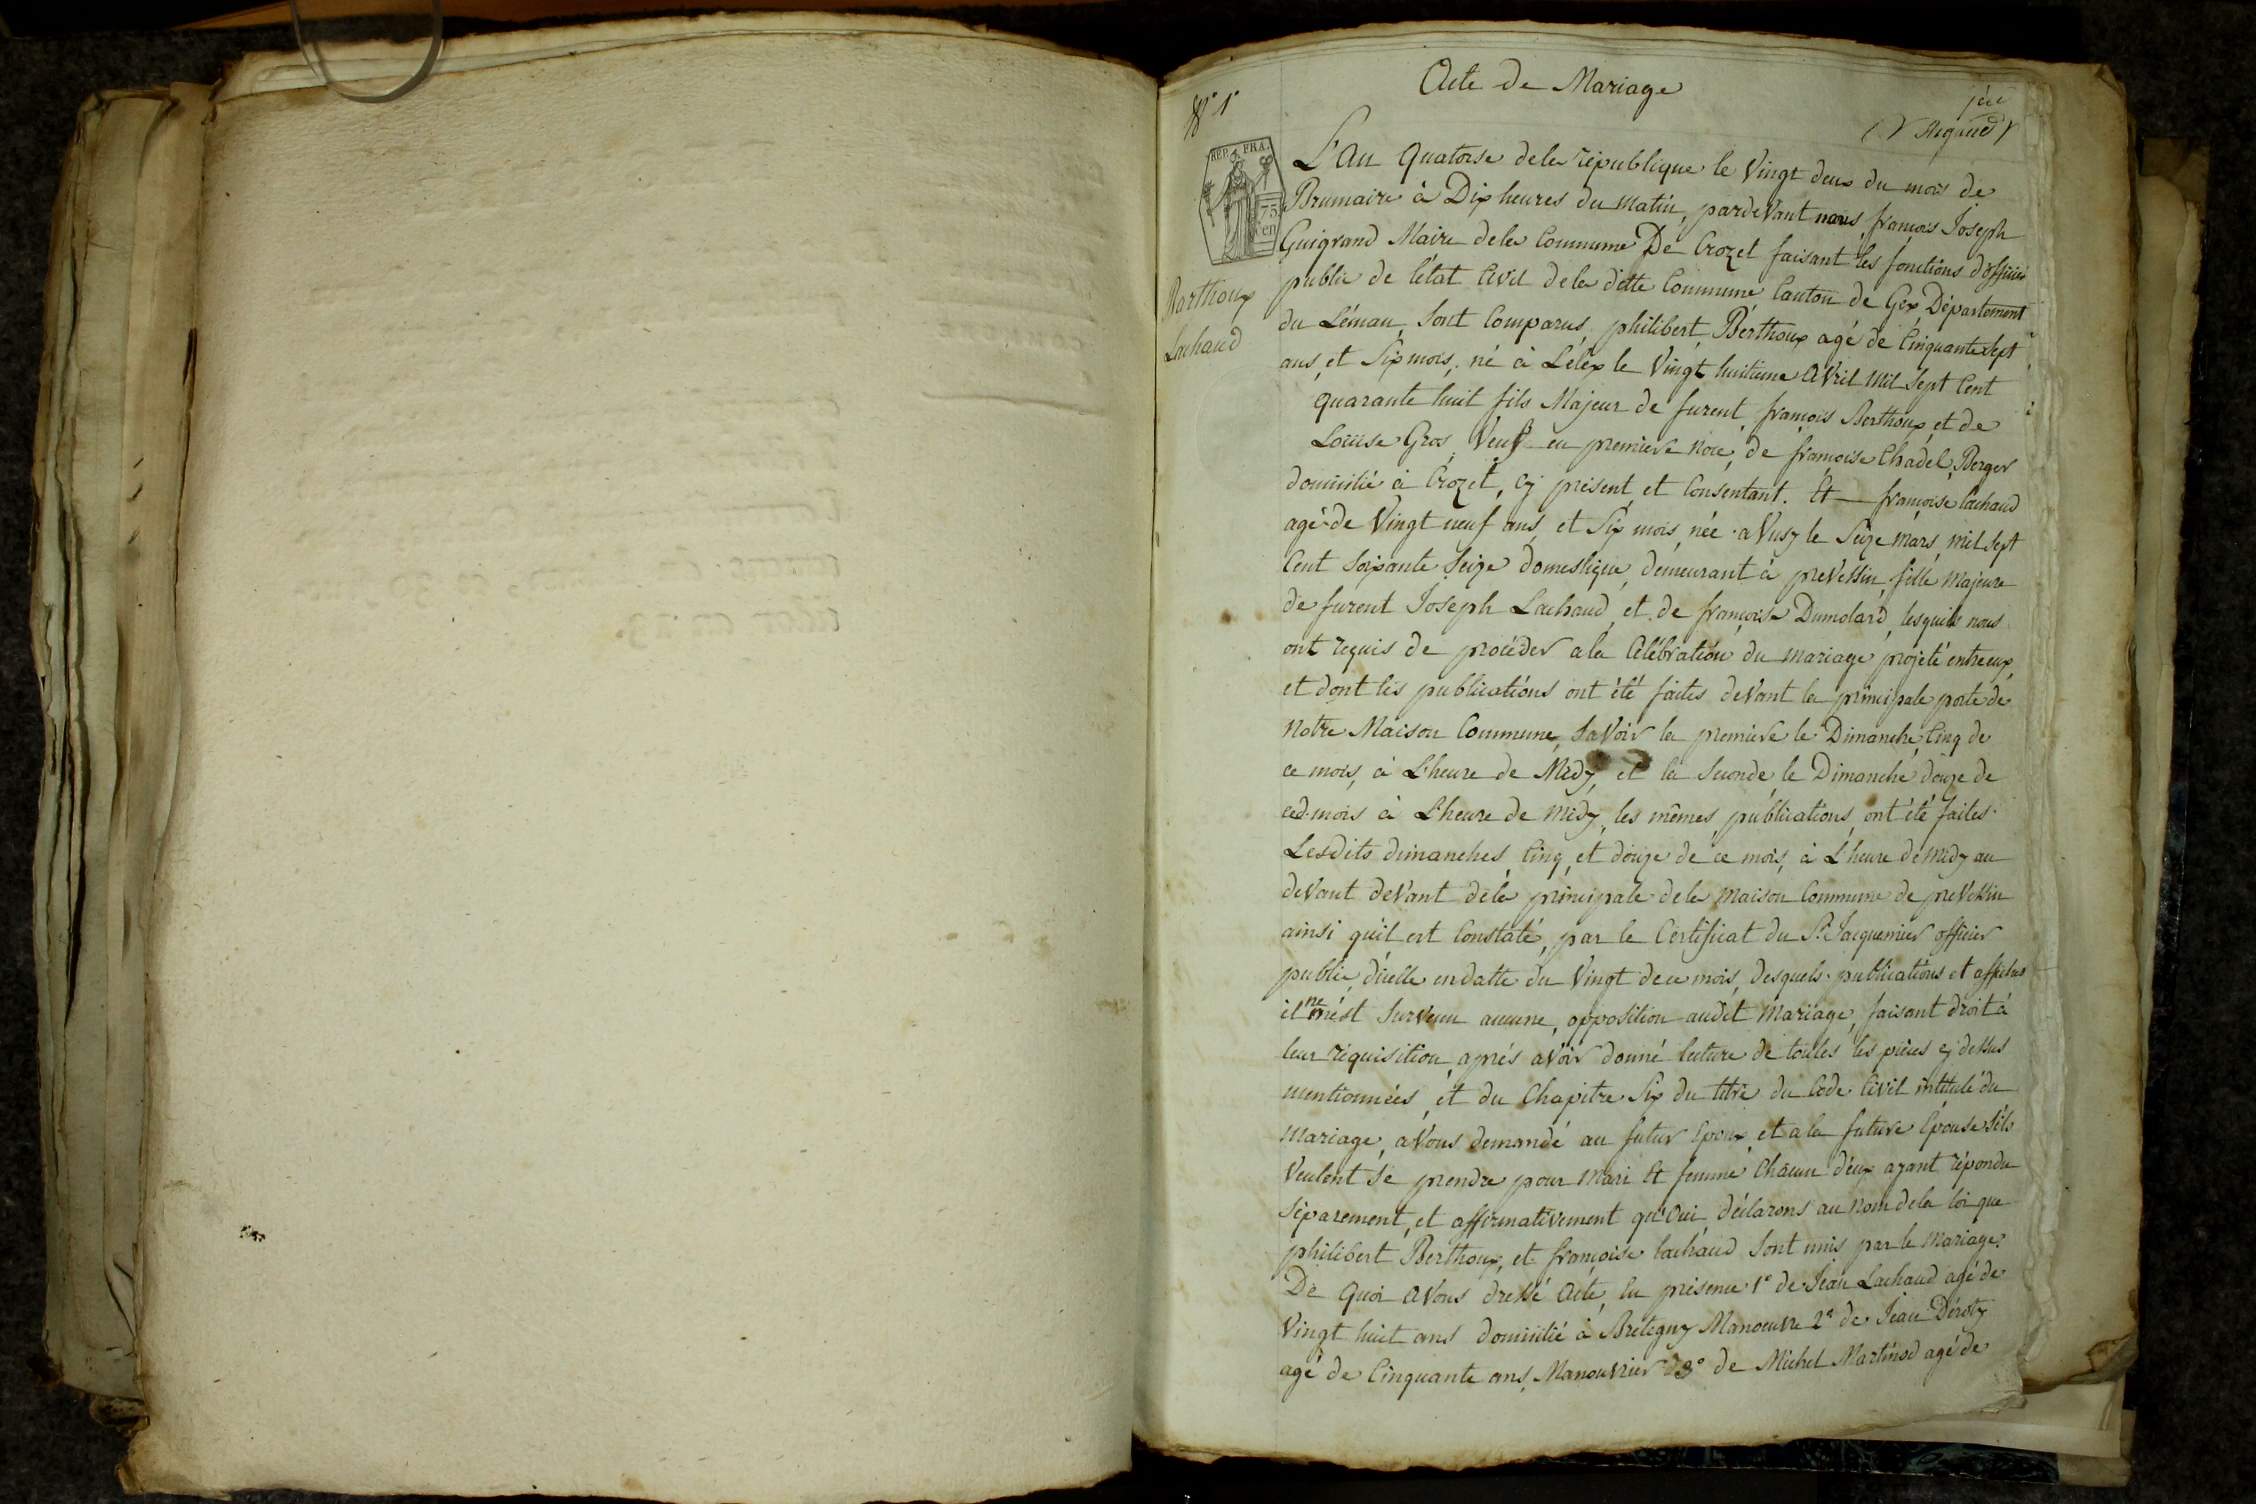 Acte de Mariage
N° 1°
REP. FRA.
75
cen
Berthoux
Lachaud
L'an quatorse dela république le Vingt deux du mois de
Brumaire à Dix heures du matin, pardevant nous françois Joseph
Guigrand Maire dela Commune De Crozet faisant les fonctions d'officier
public de l'état Civil dela ditte Commune Canton de Gex Département
du Léman, sont Comparus philibert Berthoux agé de Cinquante sept
ans, et Six mois, né à Lélex le Vingt huitieme Avril Mil Sept Cent
quarante huit fils Majeur de furent françois Berthoux et de
Louise Gros Veuf en premiere noce, de françoise Chadel, Berger
domicilié à Crozet, Cy présent, et Consentant. Et françoise Lachaud
agé de Vingt neuf ans, et Six mois, née a Vusy le Seize Mars, mil sept
Cent soixante Seize domestique, demeurant à preVessin, fille Majeure
de furent Joseph Lachaud, et de françoise Dumolard, lesquels nous
ont requis de procéder a la Célébration du mariage projeté entre eux,
et dont les publications ont été faites devant la principale porte de
notre Maison Commune, SaVoir la premiere le Dimanche, Cinq de
ce mois, à L'heure de Midy, et la Seconde le Dimanche douze de
ced. mois à L'heure de Midy, les mêmes publications, ont été faites
Lesdits dimanches Cinq, et douze de ce mois, à L'heure de Midy au
devant devant dela principale dela Maison Commune de preVessin
ainsi qu'il est Constaté, par le Certificat du Sr. Jacquemier officier
public, d'icelle en datte du Vingt de ce mois, desquels publications et affiches
il ne m'est Survenu aucune, opposition audit Mariage, faisant droit à
leur réquisition, aprés avoir donné lecture de toutes les piéces cy dessus
mentionnées, et du Chapitre Six du titre du Code Civil intitulé du
Mariage, avons demandé au futur Epoux, et a la future Epouse S'ils
Veulent Se prendre pour Mari et femme, Chacun d'eux ayant répondu
Séparement, et affirmativement qu'Oui, déclarons au nom dela loi que
philibert Berthoux, et françoise Lachaud Sont unis par le Mariage.
De Quoi avons dressé Acte, En présence 1° de Jean Lachaud agé de
Vingt huit ans domicilié à Bretegny Manoeuvre 2° de Jean Déroty
agé de Cinquante ans, Manouvrier 3° de Michel Martinod agé de